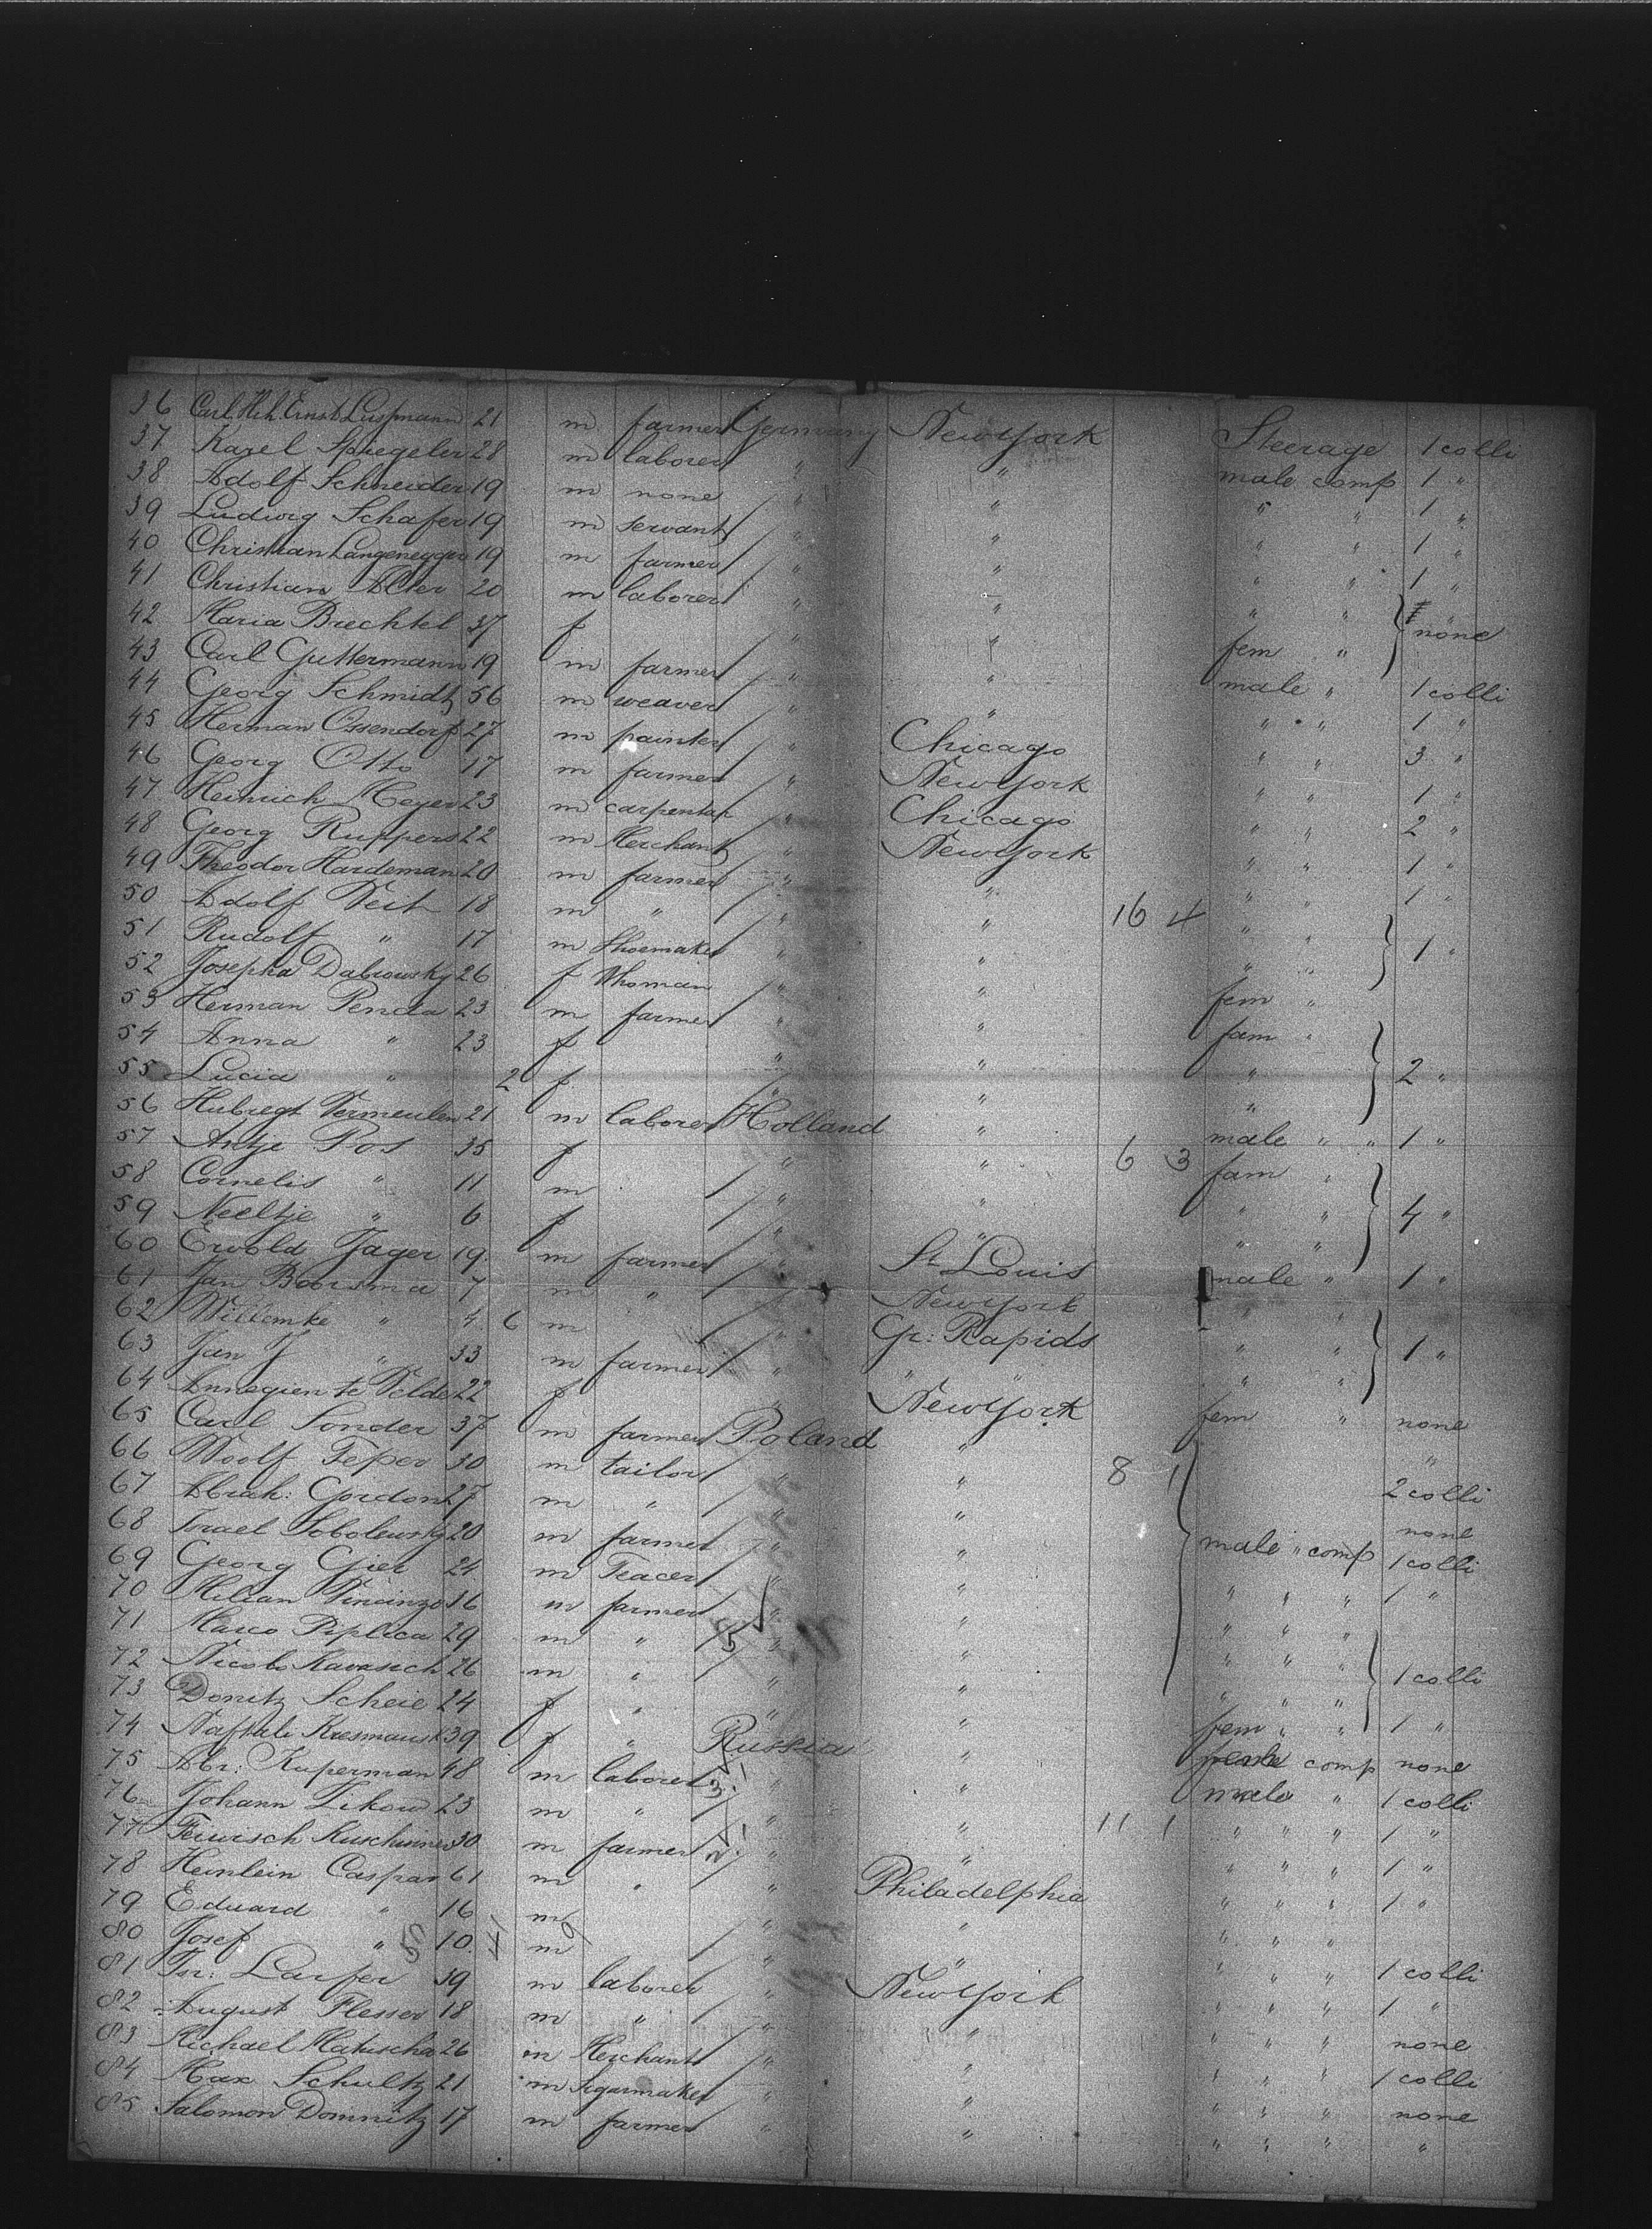 36 Carl Hch. Ernst 21 m farmer Germany New York Steerage 1 colli
37 Karel Spiegeler 28 m laborer " " male comp 1 "
38 Adolf Schneider 19 m none " " " " 1 "
39 Ludwig Schafer 19 m servant " " " " 1 "
40 Christian Langenegger 19 m farmer " " " " 1 "
41 Christian 20 m laborer " " " " none
42 Maria Brechtel 37 f " " fem "
43 Carl Guttermann 19 m farmer " " male " 1 colli
44 Georg Schmidt 56 m weaver " " " " 1 "
45 Herman Ossendorf 27 m painter " Chicago " " 3 "
46 Georg Otto 17 m farmer " New York " " 1 "
47 Heinrich Meyer 23 m carpenter " Chicago " " 2 "
48 Georg Ruppers 22 m Merchant " New York " " 1 "
49 Theodor Hardeman 20 m farmer " " " " 1 "
50 Adolf Veit 18 m " " " 16 4 " "
51 Rudolf " 17 m Shoemaker " " " " 1 "
52 Josepha Dabrowsky 26 f " " fem "
53 Herman Penda 23 m farmer " " fam "
54 Anna " 23 f " " " 2 "
55 Lucia " 2 f " " "
56 Hubregt Vermeulen 21 m laborer Holland " male " " 1 "
57 Antje Pos 35 f " " 6 3 fam "
58 Cornelis " 11 m " " " " 4 "
59 Neeltje " 6 f " " " "
60 Ewold Jager 19 m farmer " St Louis male " 1 "
61 Jan Boorsma 7 m " " New York " "
62 Willemke " 4 6 m " Gr: Rapids " " 1 "
63 Jan J " 33 m farmer " " " " "
64 Annegien te Velde 22 f " New York fem " none
65 Carl Sonder 37 m farmer Poland " "
66 Woolf Feper 30 m tailor " " 8 1 2 colli
67 Abrah: Gordon 27 m " " " none
68 Israel Sobolewsky 20 m farmer " " male " comp 1 colli
69 Georg Gier 24 m Teacer " " " " " 1 "
70 Milian Vincinzo 36 m farmer " " " " "
71 Marco Piplica 29 m " 5 " " " " " 1 colli
72 Nicolo 26 m " " " " " "
73 Donitz Scheie 24 f " " " fem " " 1 "
74 Naftali 39 f " Russia " comp none
75 Abr: Kuperman 48 m laborer 3 " " male " 1 colli
76 Johann Zikow 23 m " " " 11 1 " " " 1 "
77 30 m farmer 2 " " " " " 1 "
78 Heinlein Caspar 61 m " " Philadelphia " " " 1 "
79 Eduard " 16 m " " " " "
80 Josef " 50 10 m " " " " " 1 colli
81 39 m laborer " New York " " " 1 "
82 August Flesser 18 m " " " " " " none
83 Michael Matuscha 26 m Merchant " " " " " 1 colli
84 Max Schultz 21 m Segarmaker " " " " " none
85 Salomon Domnitz 17 m farmer " " " " " "